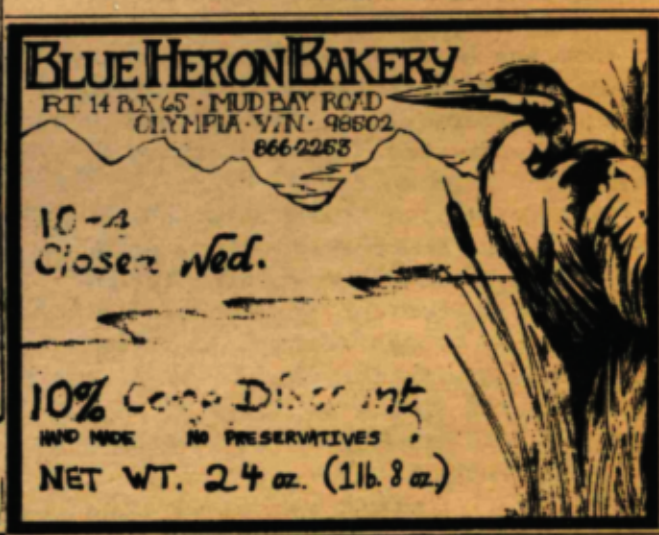 BLUE HERON BAKERY
RT 14 BOX 65 · MUD BAY ROAD
OLYMPIA · WN · 98502
866-2253
10-4
Closed Wed.
10% Co-op Discount
HAND MADE NO PRESERVATIVES
NET WT. 24 oz. (1lb. 8 oz.)